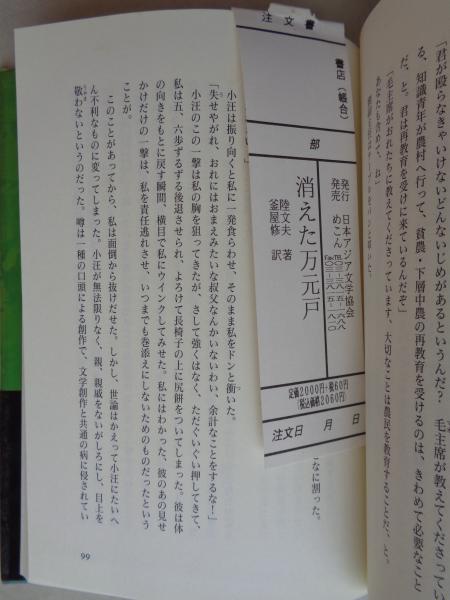 「君が殴らなきゃいけないどんないじめがあるというんだ？　毛主席が教えてくださってい
る、知識青年が農村へ行って、貧農・下層中農の再教育を受けるのは、きわめて必要なこと
だ、と。君は再教育を受けに来ているんだぞ」
「毛主席がおれたちに教えてくださっています、大切なことは農民を教育することだ、と。
あなたも含めて、ね」
注文書
書店（帳合）
部
発行 日本アジア文学協会
発売 めこん
消えた万元戸
陸文夫 著
釜屋修 訳
定価2000円+税60円
（税込価格2060円）
注文日　月　日
なに割った。
小汪は振り向くと私に一発食らわせ、そのまま私をドンと衝いた。
「失せやがれ、おれにはおまえみたいな叔父なんかいないわい、余計なことをするな！」
小汪のこの一撃は私の胸を狙ってきたが、さして強くはなく、ただぐいぐい押してきて、
私は五、六歩ずるずる後退させられ、よろけて長椅子の上に尻餅をついてしまった。彼は体
の向きをもとに戻す瞬間、横目で私にウインクしてみせた。私にはわかった、彼のあの見せ
かけだけの一撃は、私を責任逃れさせ、いつまでも巻添えにしないためのものだったという
ことが。
このことがあってから、私は面倒から抜けだせた。しかし、世論はかえって小汪にたいへ
ん不利なものに変ってしまった。小汪が無法限りなく、親、親戚をないがしろにし、目上を
敬わないというのだった。噂は一種の口頭による創作で、文学創作と共通の病に侵されてい
99